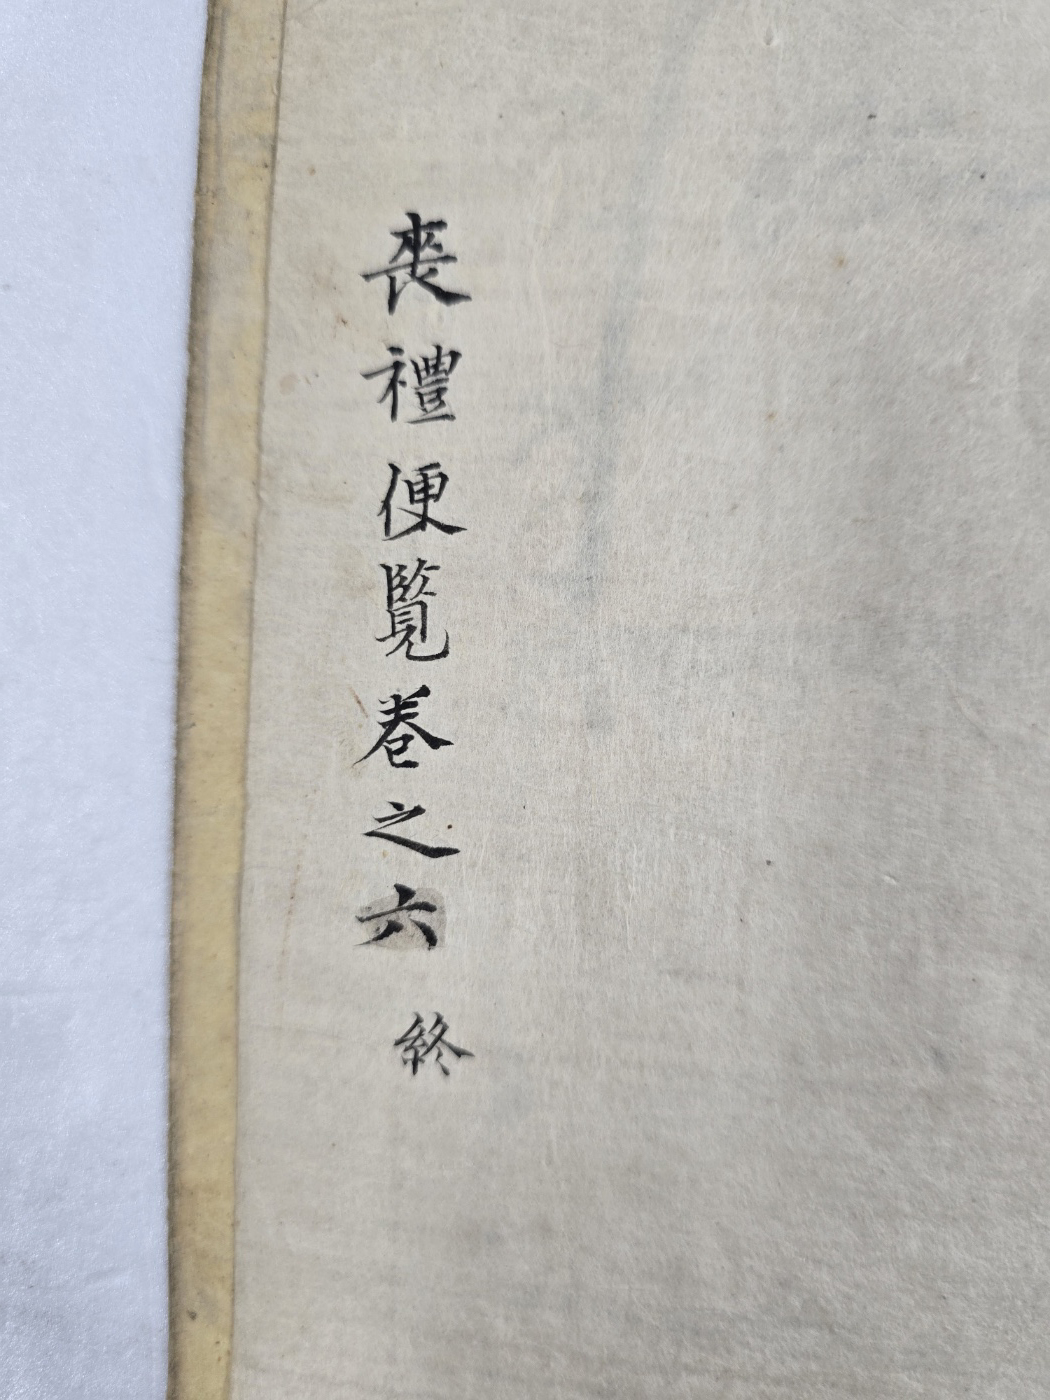 喪禮便覧卷之六 終